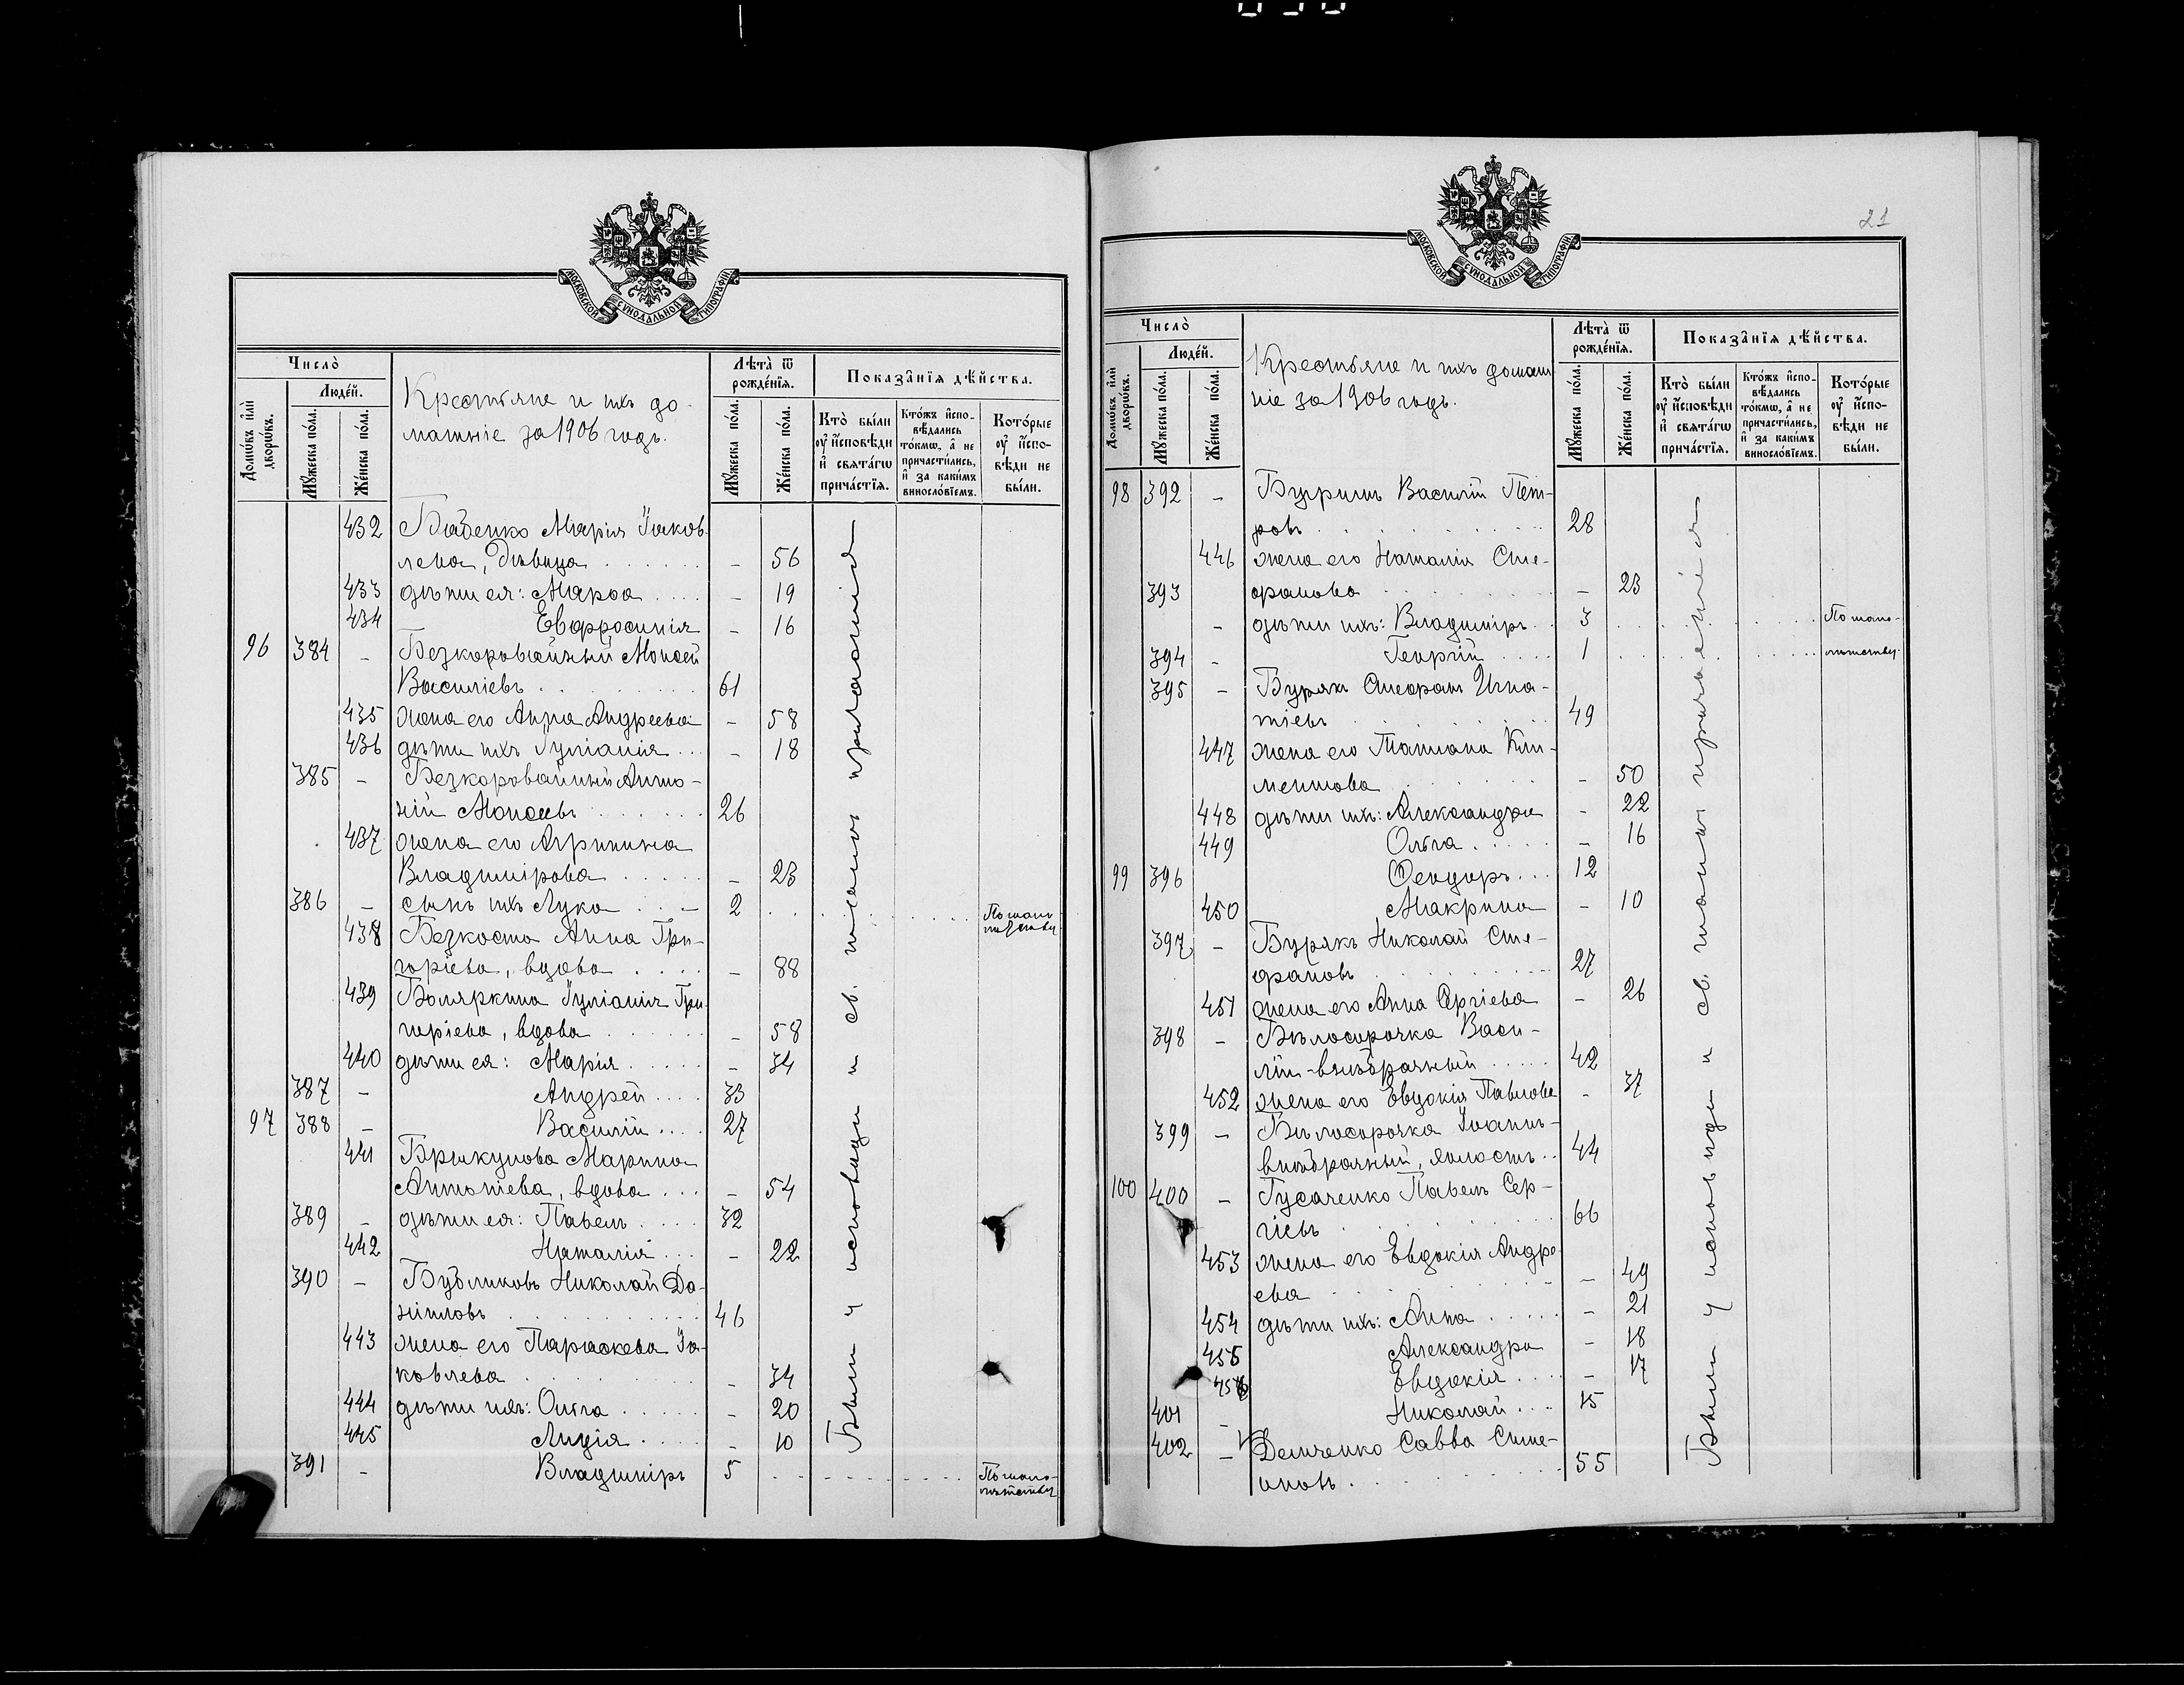 21
МОСКОВСКОЙ СѴНОДАЛЬНОЙ ТИПОГРАФІИ
Число̀
Домѡ́въ и҆лѝ дворѡ́въ.
Люде́й.
Мꙋ́жеска по́ла.
Же́нска по́ла.
Крестьяне и ихъ до-
машніе за 1906 годъ.
Лѣ́та ѿ рожде́нїѧ.
Мꙋ́жеска по́ла.
Же́нска по́ла.
Показа̑нїѧ дѣ́йства.
Кто̀ бы́ли оу҆ и҆́сповѣди и҆ свѧта́гѡ прича́стїѧ.
Кто́жъ и҆спо- вѣ́дались то́кмѡ, а҆ не причасти́лись, и҆ за каки́мъ винослоⷡ́емъ.
Кото́рые оу҆ и҆́спо- вѣди не бы́ли.
432 Бабенко Марія Іаков-
лева, дѣвица - 56
433 дѣти ея: Марѳа - 19
434 Евфросинія - 16
96 384 - Безкоровайный Моисей
Василіевъ 61
435 жена его Анна Андреева - 58
436 дѣти ихъ Іуліанія - 18
385 - Безкоровайный Анто-
ній Моисеевъ 26
437 жена его Агрипина
Владимірова - 23
386 - сынъ ихъ Лука 2 По мало-
лѣтству
438 Безкоста Анна Гри-
горіева, вдова - 88
439 Боляркина Іуліанія Гри-
горіева, вдова - 58
440 дѣти ея: Марія - 34
387 - Андрей 33
97 388 - Василій 27
441 Брикунова Марина
Антоніева, вдова - 54
389 - дѣти ея: Павелъ 32
442 Наталія - 22
390 - Бубликовъ Николай Да-
ніиловъ 46
443 жена его Параскева Іа-
ковлева - 34
444 дѣти ихъ: Ольга - 20
445 Лидія - 10
391 - Владиміръ 5 По мало-
лѣтству
Были у исповѣди и св. таинъ причастія
МОСКОВСКОЙ СѴНОДАЛЬНОЙ ТИПОГРАФІИ
Число̀
Домѡ́въ и҆лѝ дворѡ́въ.
Люде́й.
Мꙋ́жеска по́ла.
Же́нска по́ла.
Крестьяне и ихъ домаш-
ніе за 1906 годъ.
Лѣ́та ѿ рожде́нїѧ.
Мꙋ́жеска по́ла.
Же́нска по́ла.
Показа̑нїѧ дѣ́йства.
Кто̀ бы́ли оу҆ и҆́сповѣди и҆ свѧта́гѡ прича́стїѧ.
Кто́жъ и҆спо- вѣ́дались то́кмѡ, а҆ не причасти́лись, и҆ за каки́мъ винослоⷡ́емъ.
Кото́рые оу҆ и҆́спо- вѣди не бы́ли.
98 392 - Буримъ Василій Пет-
ровъ 28
446 жена его Наталія Сте-
393 фанова - 23
- дѣти ихъ: Владиміръ 3 По мало-
394 - Георгій 1 лѣтству.
395 - Бурякъ Стефанъ Игна-
тіевъ 49
447 жена его Татіана Кли-
ментова - 50
448 дѣти ихъ: Александра - 22
449 Ольга - 16
99 396 Ѳеодоръ 12
450 Макрина - 10
397 - Бурякъ Николай Сте-
фановъ 27
451 жена его Анна Сергіева - 26
398 - Бѣлосорочка Васи-
лій-внѣбрачный 42
452 жена его Евдокія Павлова - 37
399 - Бѣлосорочка Іоаннъ-
внѣбрачный, холостъ 44
100 400 - Гусаченко Павелъ Сер-
гіевъ 66
453 жена его Евдокія Андре-
ева - 49
454 дѣти ихъ: Анна - 21
455 Александра - 18
456 Евдокія - 17
401 - Николай 15
402 - Демченко Савва Симе-
оновъ 55
Были у исповѣди и св. таинъ причастія